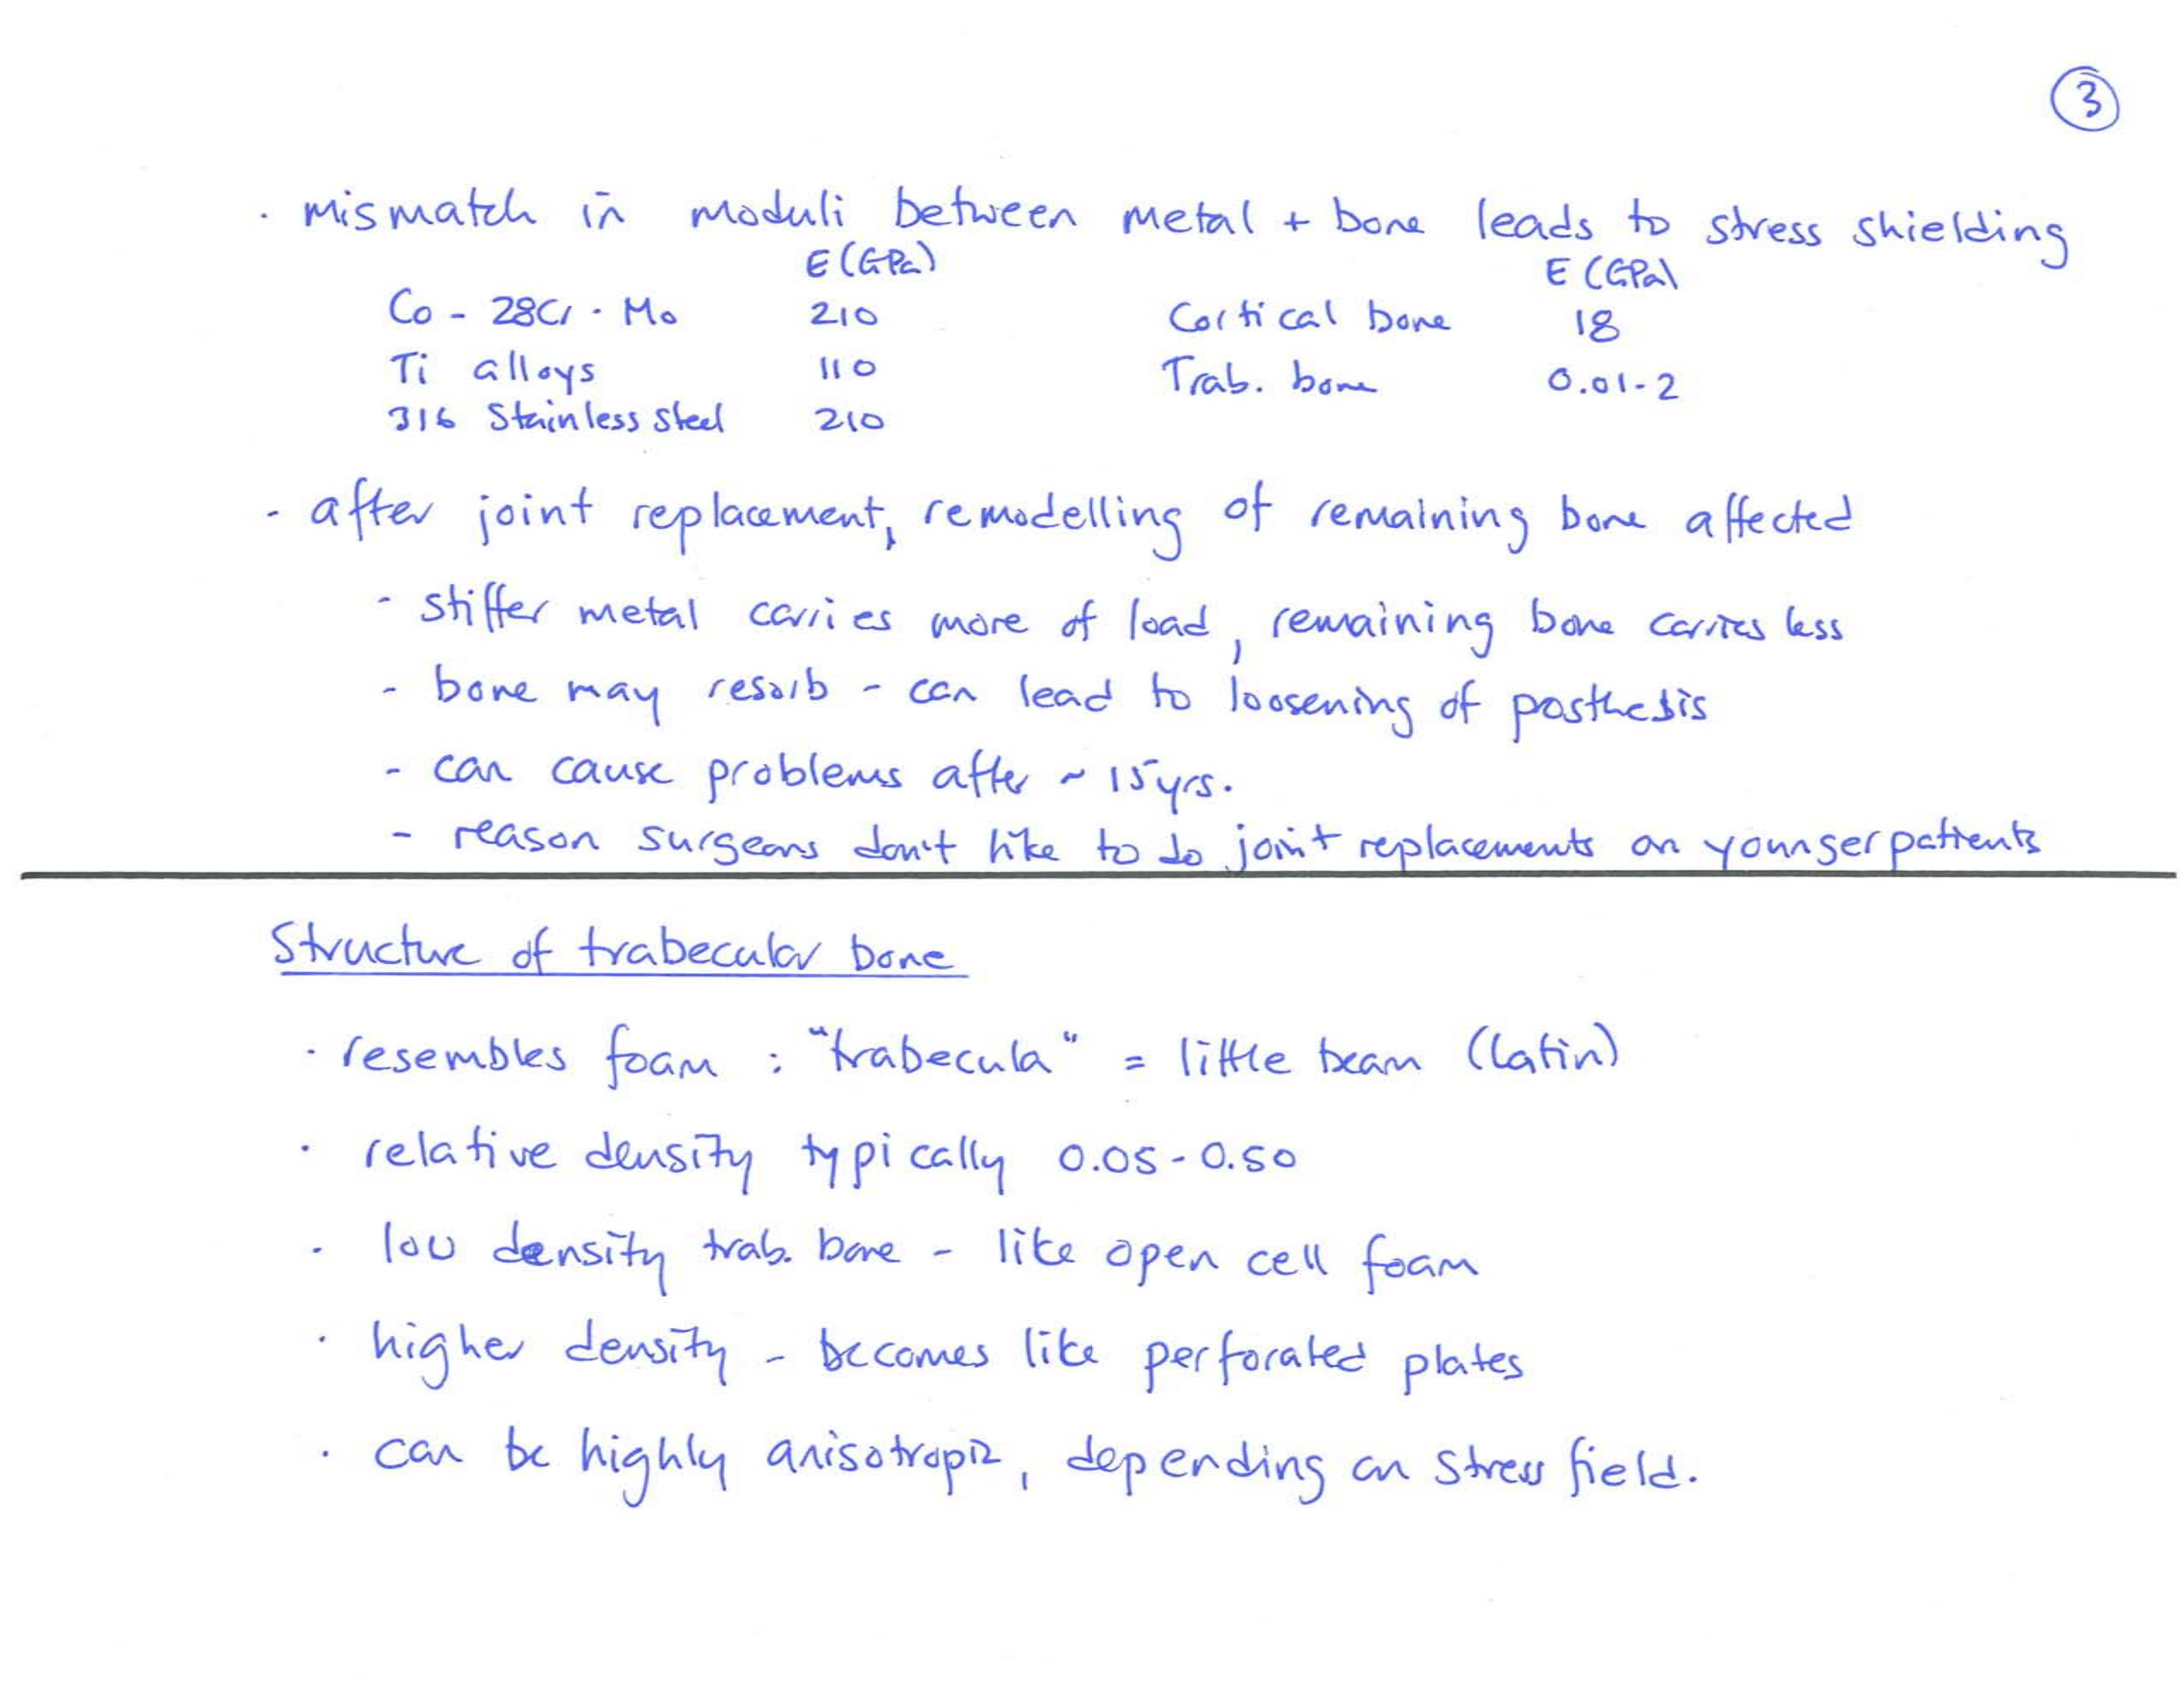 3
· mismatch in moduli between metal + bone leads to stress shielding
E (GPa) E (GPa)
Co - 28Cr - Mo 210 Cortical bone 18
Ti alloys 110 Trab. bone 0.01-2
316 Stainless Steel 210
· after joint replacement, remodelling of remaining bone affected
- stiffer metal carries more of load, remaining bone carries less
- bone may resorb - can lead to loosening of prosthesis
- can cause problems after ~ 15yrs.
- reason surgeons don't like to do joint replacements on younger patients
Structure of trabecular bone
· resembles foam : "trabecula" = little beam (Latin)
· relative density typically 0.05-0.50
· low density trab. bone - like open cell foam
· higher density - becomes like perforated plates
· can be highly anisotropic, depending on stress field.